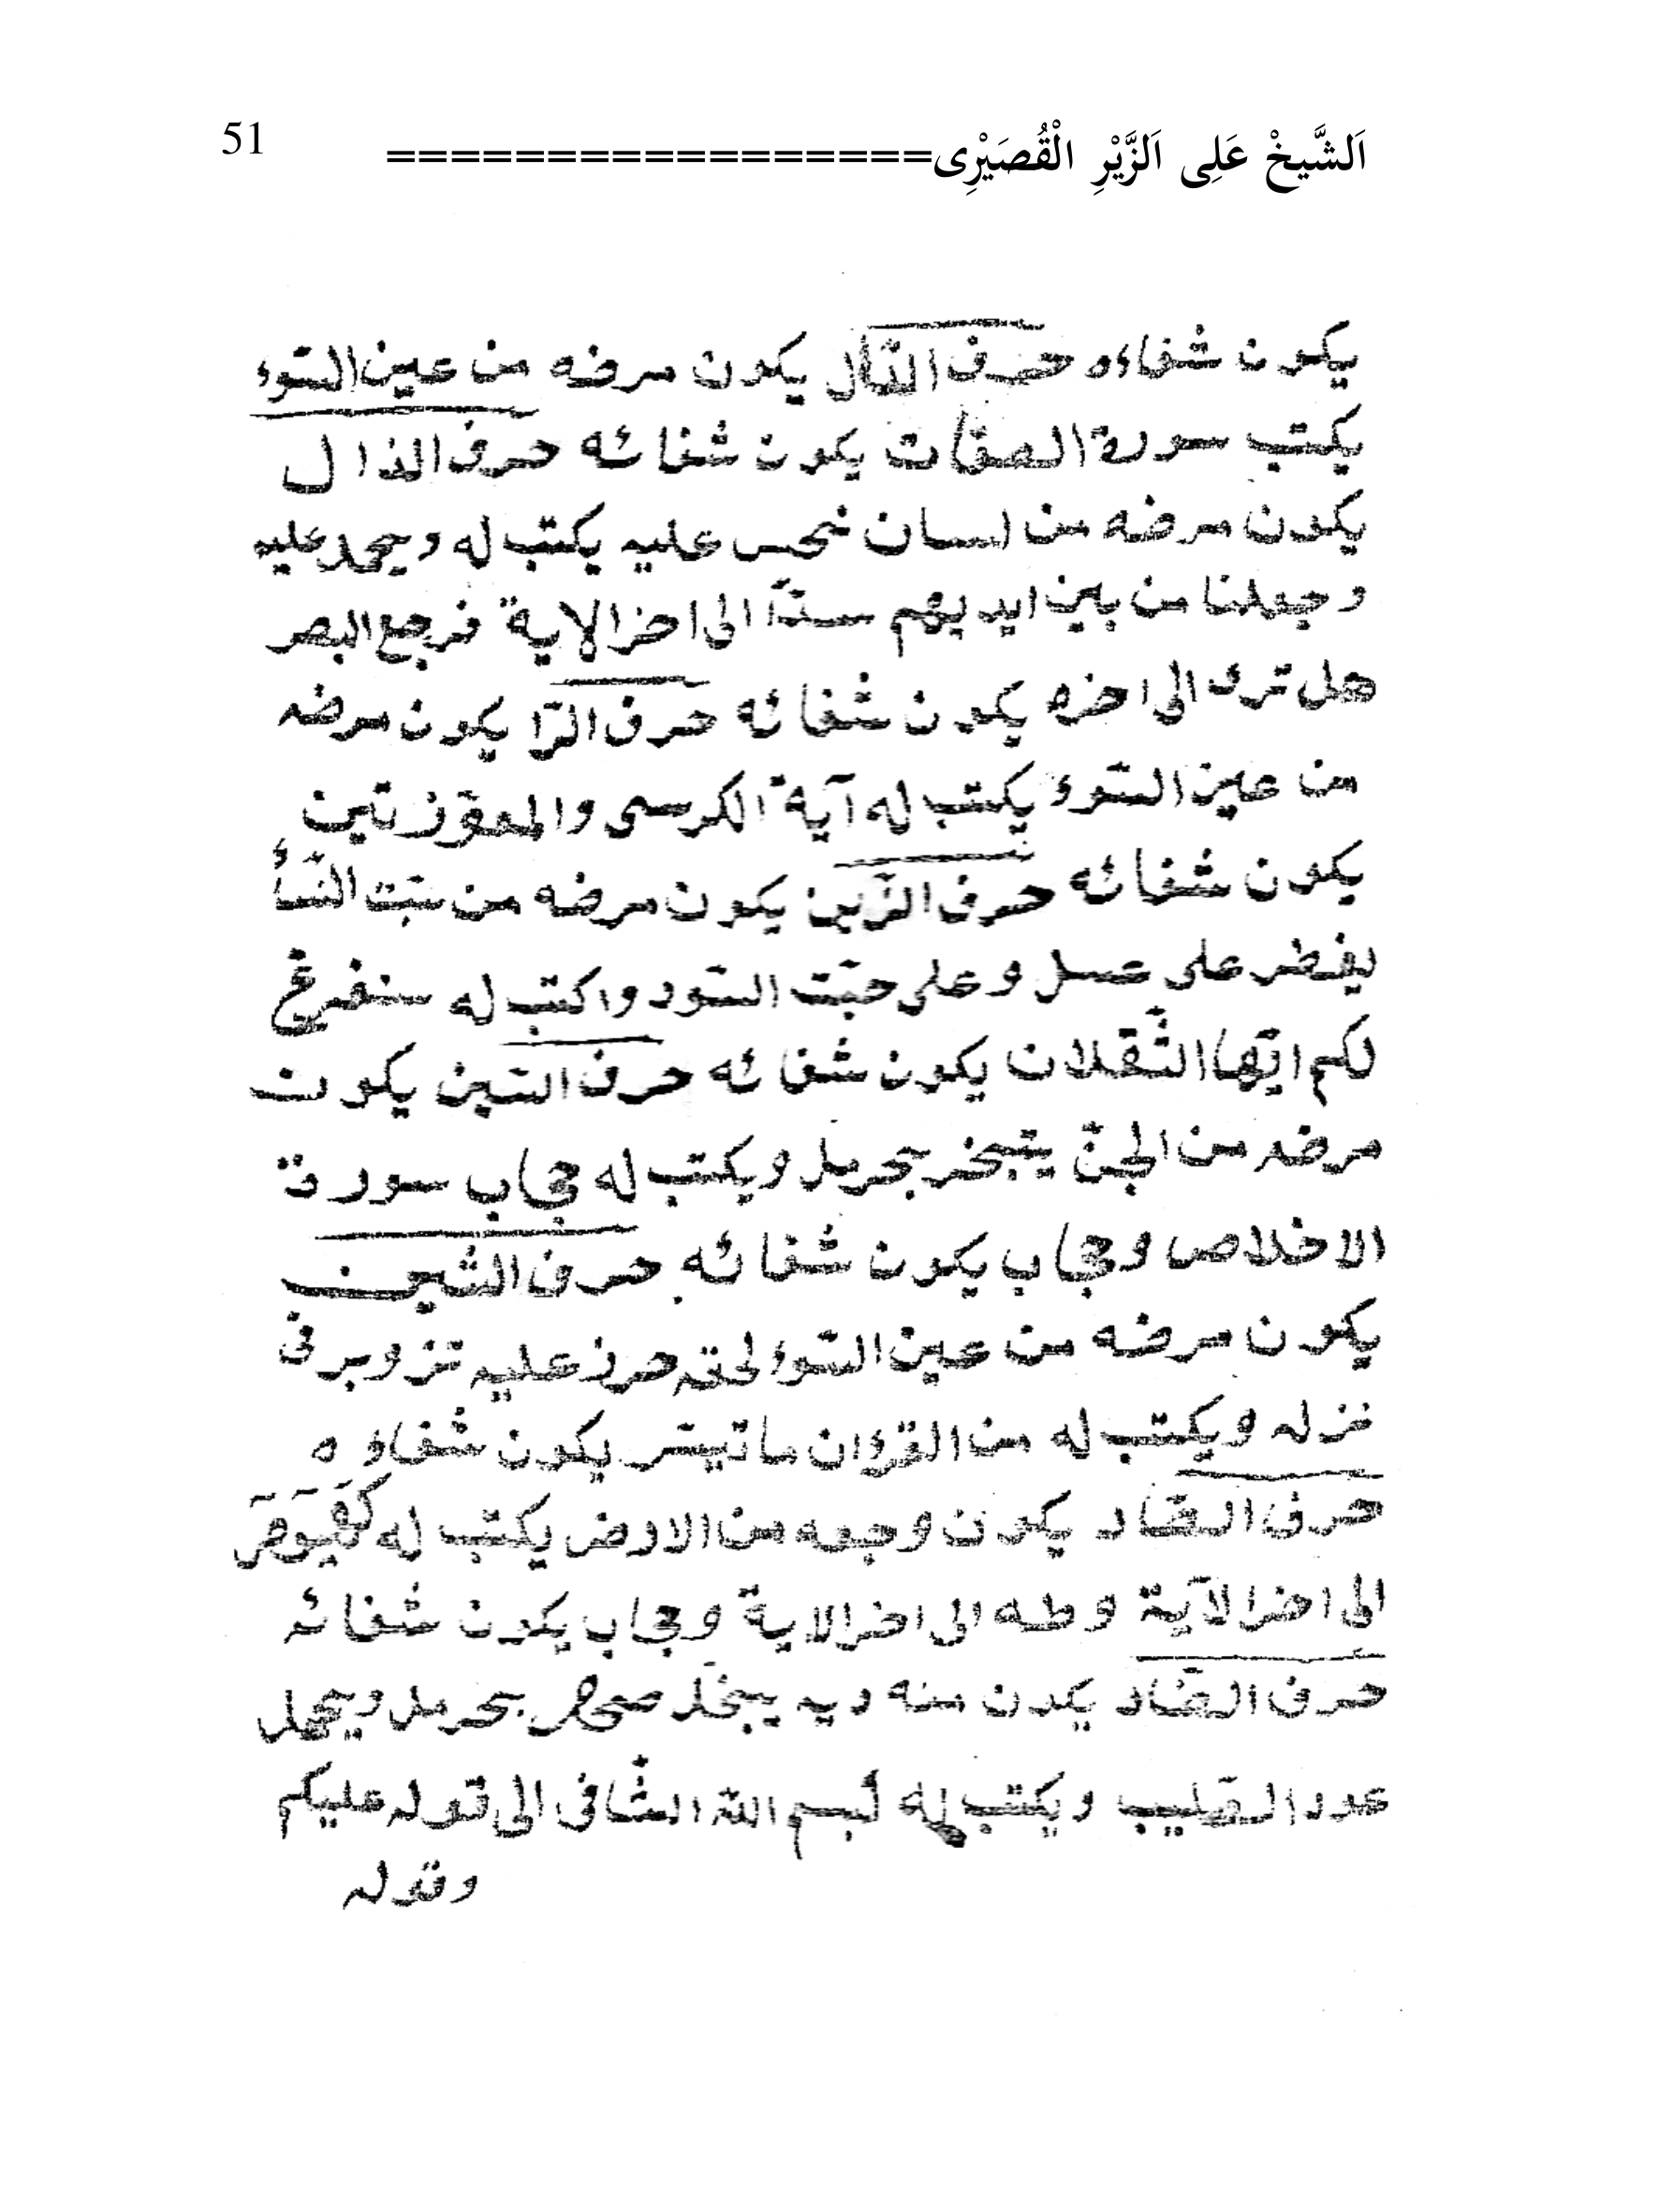 اَلشَّيخْ عَلِى اَلزَّيْرِ الْقُصَيْرِى================= 51
يكون شفاءه حرف الدّال يكون مرضه من عين السّوء
يكتب سورة الصفّات يكون شفائه حرف الذال
يكون مرضه من لسان نحس عليه يكتب له ويحمد عليه
وجعلنا من بين ايديهم سدّاً الى اخر الاية فرجع البصر
هل ترى الى اخره يكون شفائه حرف الرّا يكون مرضه
من عين السّوء يكتب له آية الكرسى والمعوّزتين
يكون شفائه حرف الزّين يكون مرضه من النّسأ
يفطر على عسل وعلى حبّت السّود واكتب له سنفرغ
لكم ايّها الثّقلان يكون شفائه حرف السّين يكون
مرضه من الجنّ يتبخر بحرمل ويكتب له حجاب سورة
الاخلاص وحجاب يكون شفائه حرف الشّين
يكون مرضه من عين السّوء لحقه عليه فى
نزله ويكتب له من القرءان ما تيسّر يكون شفاوه
حرف الصّاد يكون وجعه من الارض يكتب له
الى اخر الآية وطه الى اخر الاية وحجاب يكون شفائه
حرف الضّاد يكون منه ديه بحرمل ويحمل
عود الصّليب ويكتب له لبسم اللّه الشّافى الى قوله عليكم
وقوله